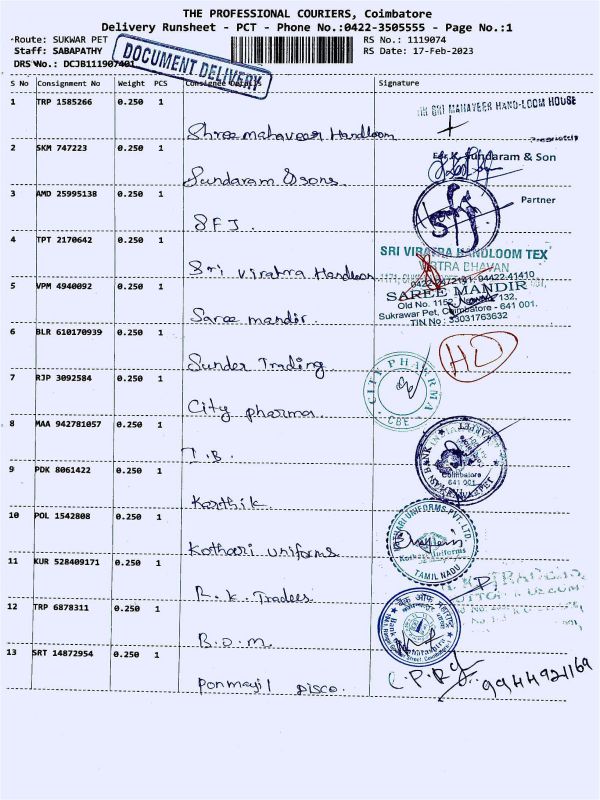 THE PROFESSIONAL COURIERS, Coimbatore
Delivery Runsheet - PCT - Phone No.:0422-3505555 - Page No.:1
Route: SUKWAR PET
RS No.: 1119074
Staff: SABAPATHY
RS Date: 17-Feb-2023
DRS No.: DCJB111907401
DOCUMENT DELIVERY
S No Consignment No Weight PCS Consignee Details Signature
1 TRP 1585266 0.250 1 Shree mahaveer Handloom
SRI MAHAVEER HAND-LOOM HOUSE
2 SKM 747223 0.250 1 Sundaram & sons.
Sundaram & Son
Partner
3 AMD 25995138 0.250 1 S F J.
sfj
4 TPT 2170642 0.250 1 Sri Viratra Handloom
SRI VIRATRA HANDLOOM TEX
5 VPM 4940092 0.250 1 Saree mandir.
SAREE MANDIR
Sukrawar Pet, Coimbatore - 641 001.
TIN No : 33031763632
6 BLR 610170939 0.250 1 Sunder Trading
HD
7 RJP 3092584 0.250 1 City pharma.
CITY PHARMA
CBE
8 MAA 942781057 0.250 1 I.B.
Coimbatore
641 001
9 PDK 8061422 0.250 1 Karthik
10 POL 1542808 0.250 1 Kothari uniforms
KOTHARI UNIFORMS PVT. LTD.
Kothari Uniforms
TAMIL NADU
11 KUR 528409171 0.250 1 R.K. Tradees
12 TRP 6878311 0.250 1 B.O.M.
13 SRT 14872954 0.250 1 Ponmayil Disco.
9944921169